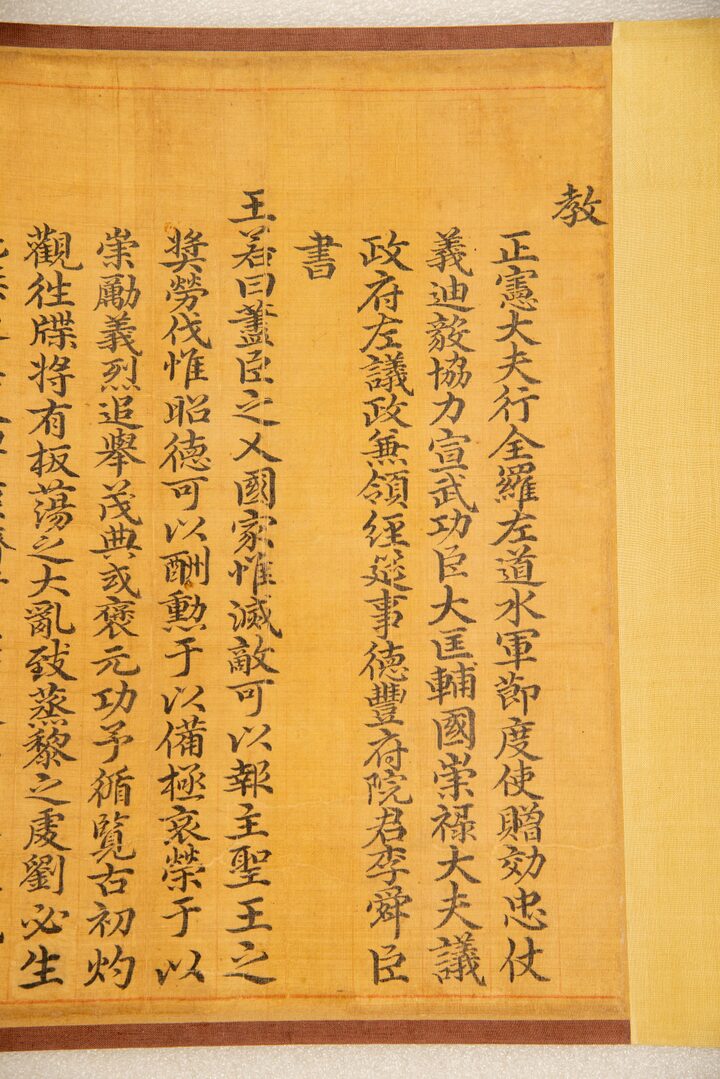 教
正憲大夫行全羅左道水軍節度使贈効忠仗
義迪毅協力宣武功臣大匡輔國崇祿大夫議
政府左議政兼領經筵事德豐府院君李舜臣
書
王若曰藎臣之乂國家惟滅敵可以報主聖王之
奬勞伐惟昭德可以酬勳于以備極哀榮于以
崇勵義烈追擧茂典或褒元功予循覽古初灼
觀往牒將有板蕩之大亂致蒸黎之虔劉必生